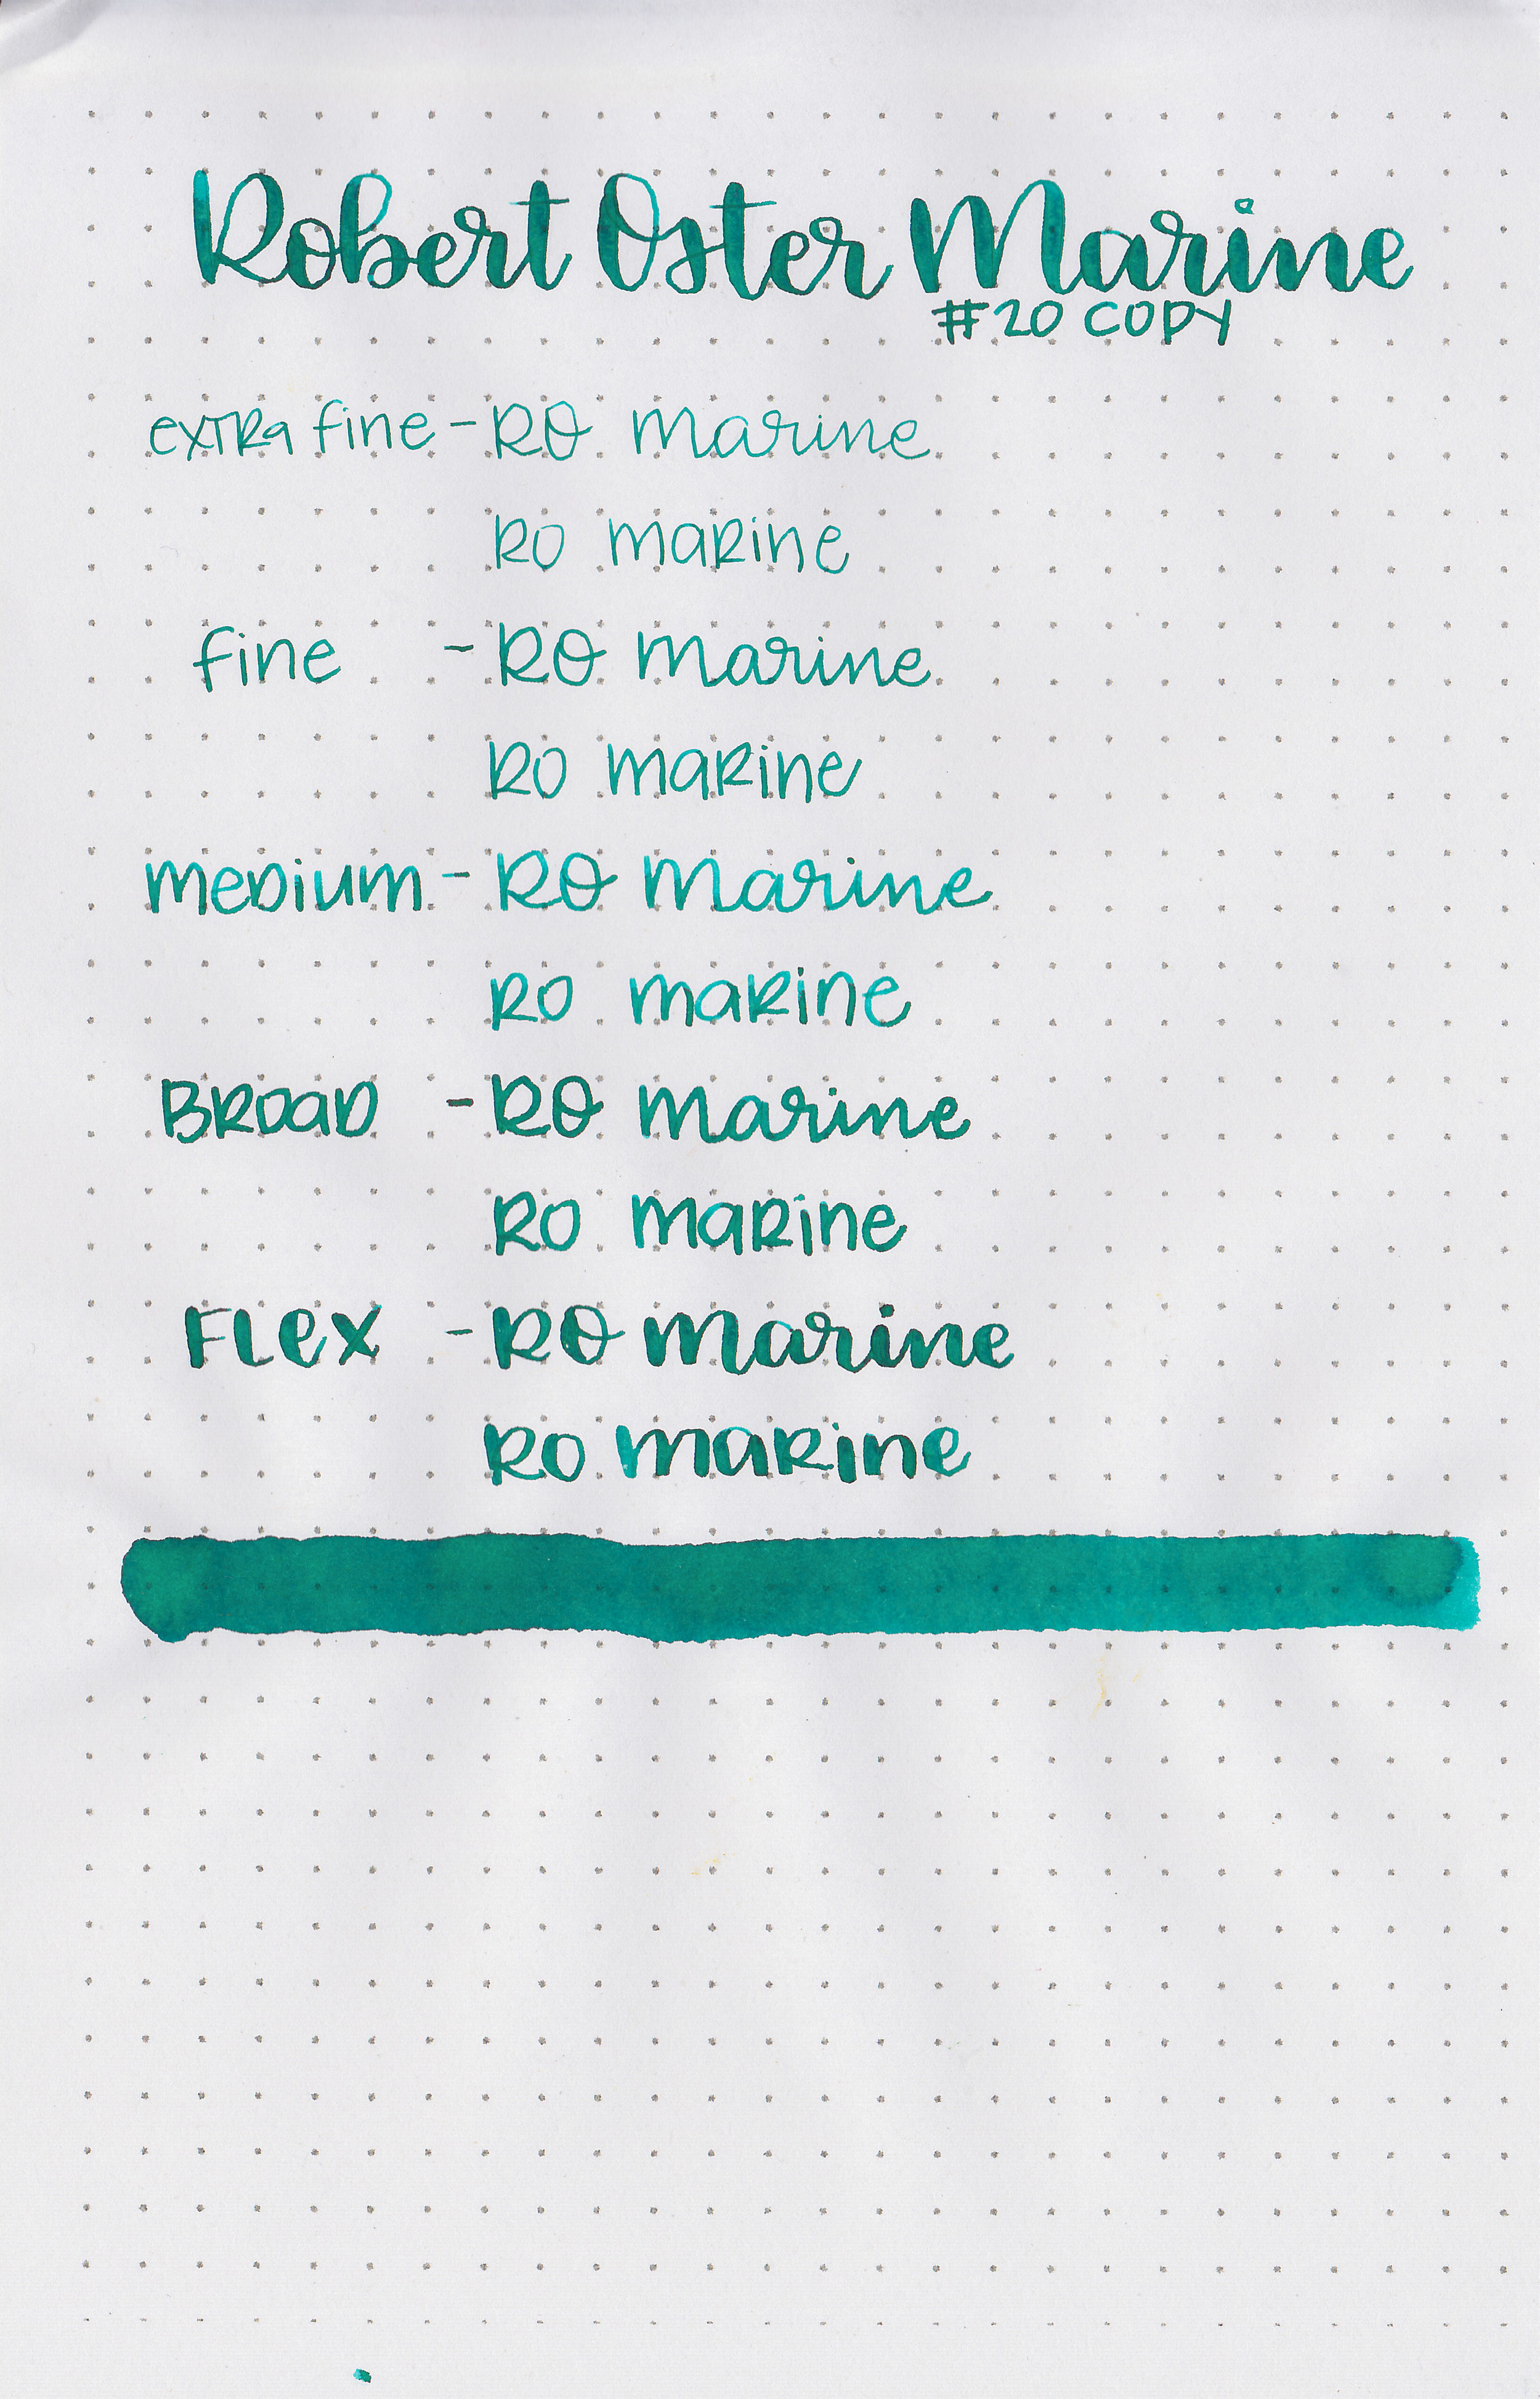 Robert Oster Marine
#20 COPY
extra fine - RO Marine
RO marine
fine - RO Marine
RO marine
medium - RO Marine
RO marine
Broad - RO Marine
RO marine
Flex - RO Marine
RO marine